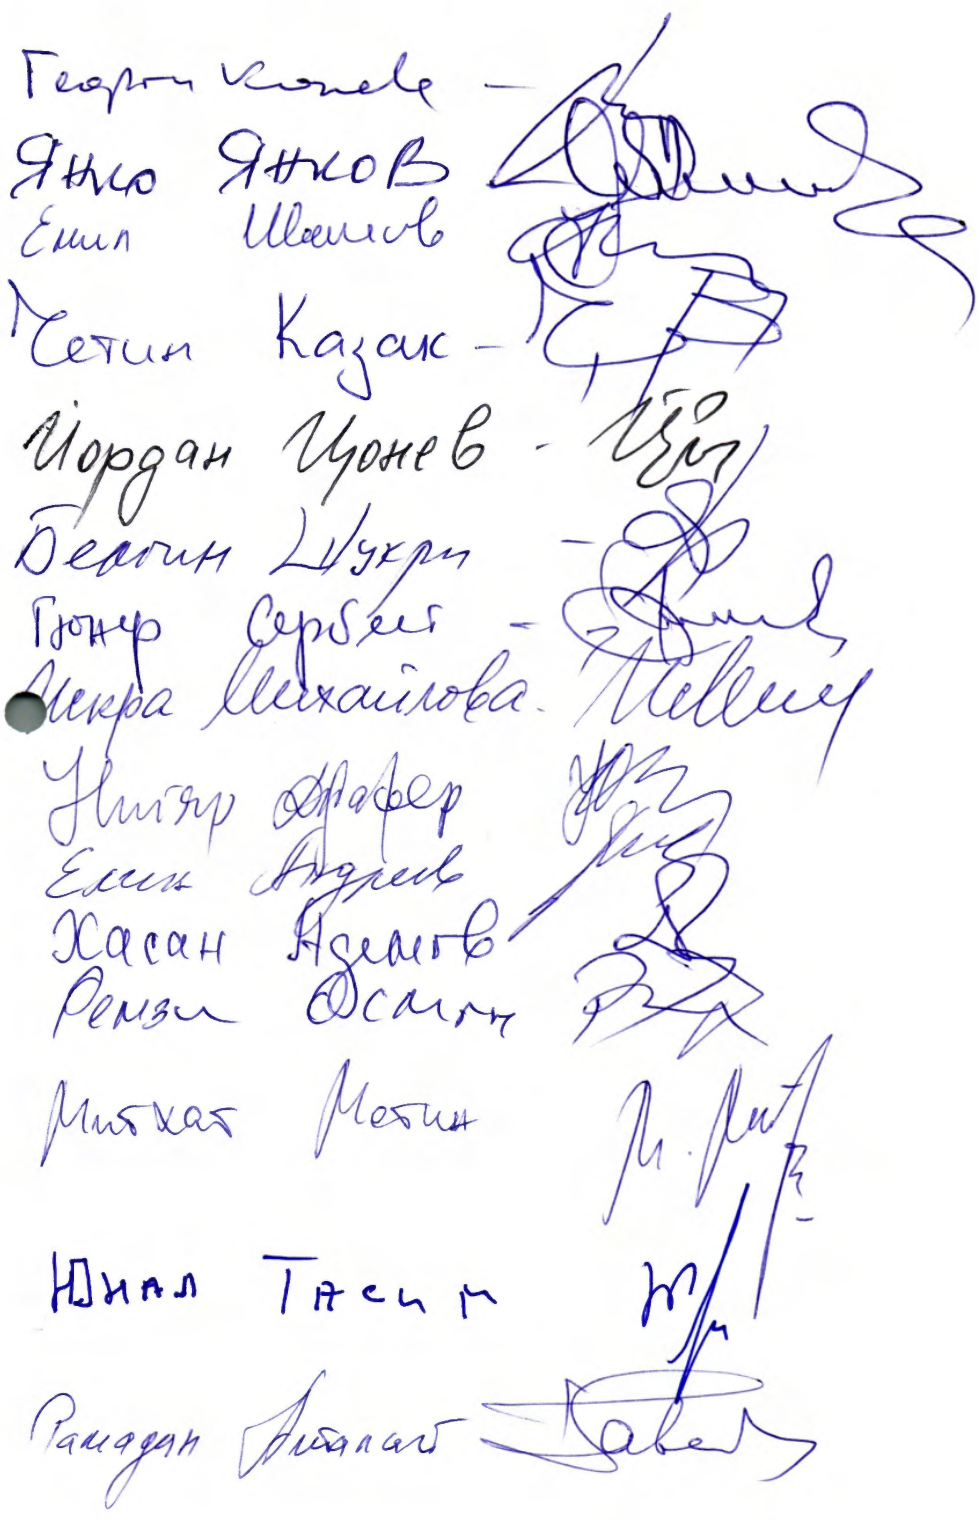 Георги Колев –
Янко Янков
Емил
Четин Казак –
Йордан Цонев -
Белгин Шукри –
Гюнер Сербест -
Искра Михайлова -
Нигяр Джафер
Елин Андреев
Хасан Адемов
Ремзи Осман
Митхат Метин
Юнал Тасим
Рамадан Аталай